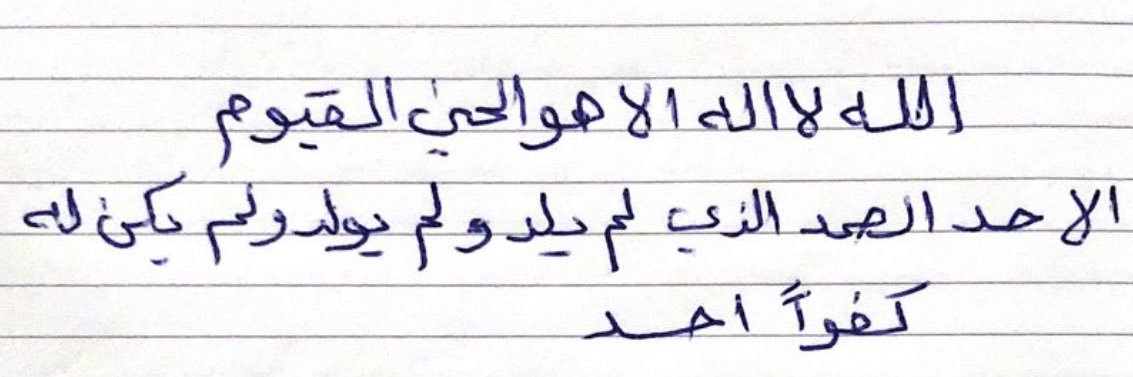 الله لا اله الا هو الحي القيوم
الاحد الصمد الذي لم يلد ولم يولد ولم يكن له
كفواً احد